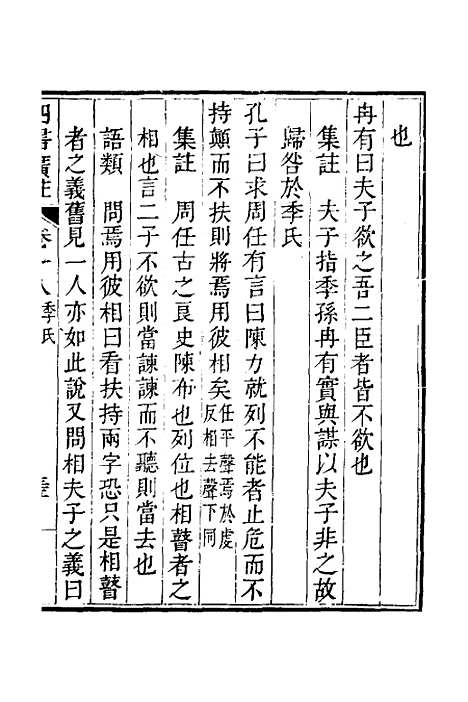 也
冉有曰夫子欲之吾二臣者皆不欲也
集註　夫子指季孫冉有實與謀以夫子非之故
歸咎於季氏
孔子曰求周任有言曰陳力就列不能者止危而不
持顛而不扶則將焉用彼相矣任平聲焉於虔反相去聲下同
集註　周任古之良史陳布也列位也相瞽者之
相也言二子不欲則當諫諫而不聽則當去也
語類　問焉用彼相曰看扶持兩字恐只是相瞽
者之義舊見一人亦如此說又問相夫子之義曰
四書廣註　卷十八季氏